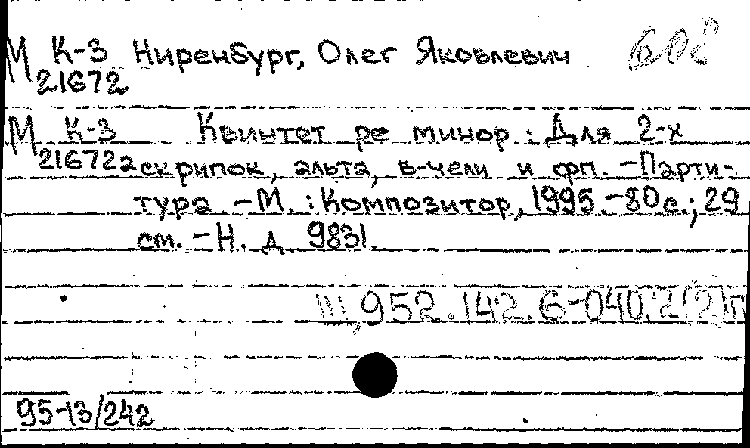 М К-3 Ниренбург, Олег Яковлевич 608
21672
М К-3 Квинтет ре минор : Для 2-х
21672а скрипок, альта, в-чели и фп. – Парти-
тура – М. : Композитор, 1995. – 80 с. ; 29
см. – Н. д. 9831.
952.142.6-040.2(2)п
95-13/242